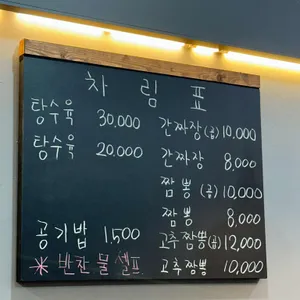 차림표
탕수육 30,000
탕수육 20,000
공기밥 1,500
* 반찬 물 셀프
간짜장 (곱) 10,000
간짜장 8,000
짬뽕 (곱) 10,000
짬뽕 8,000
고추짬뽕 (곱) 12,000
고추짬뽕 10,000